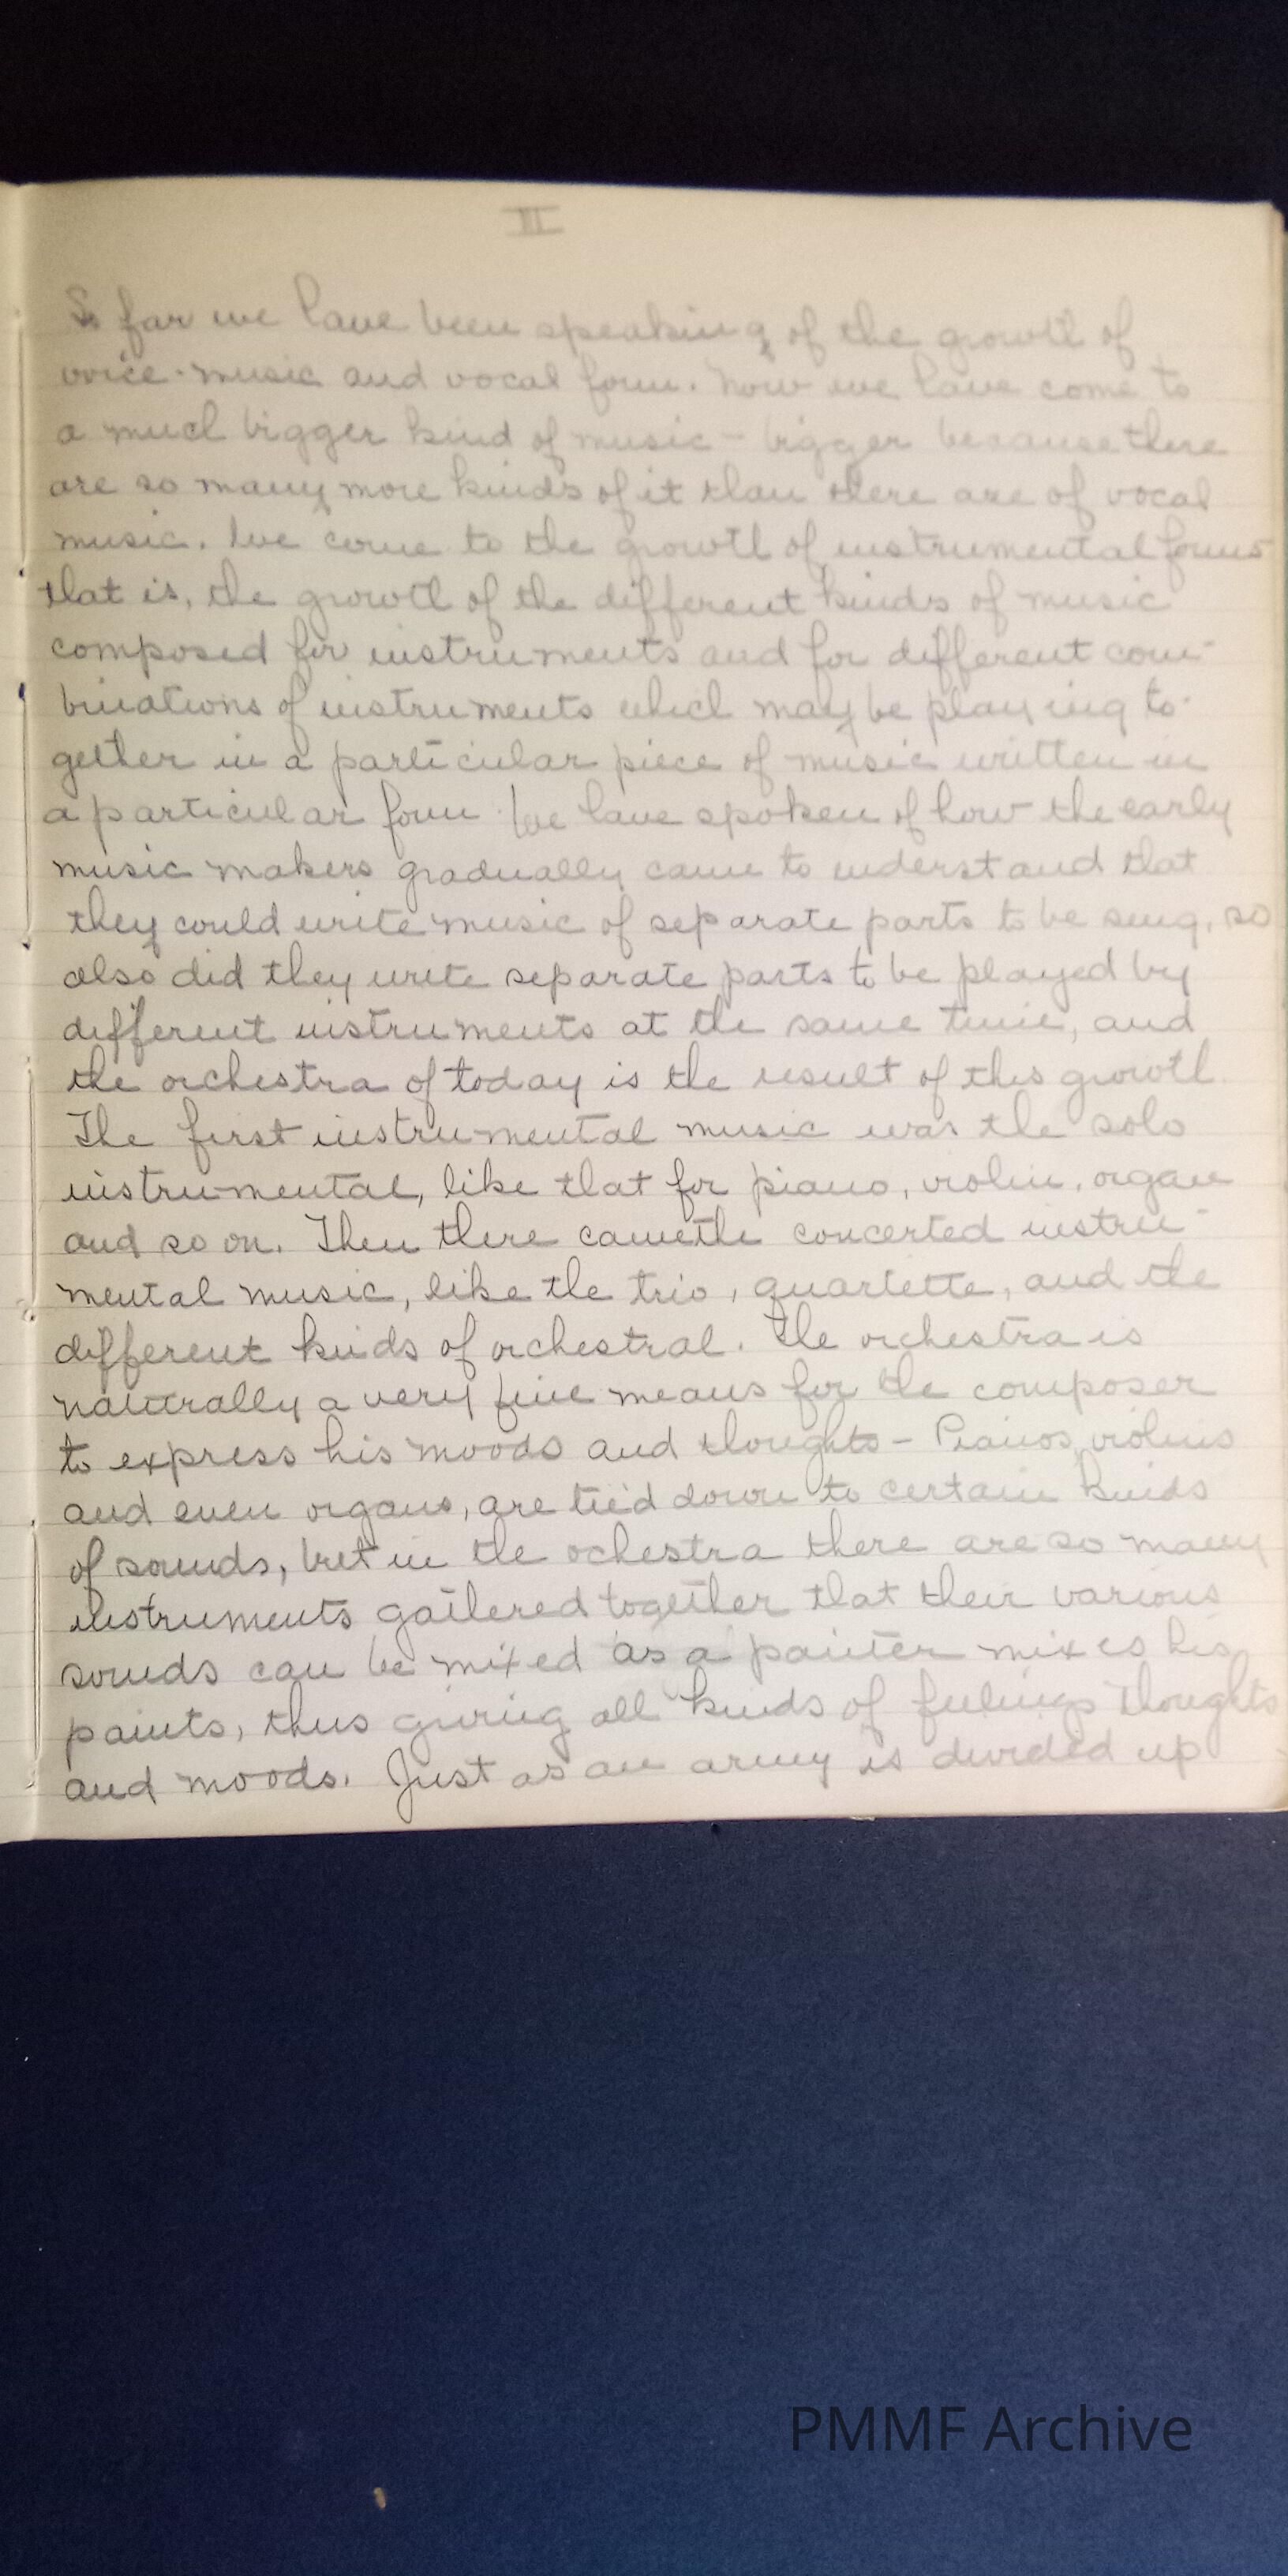 III
So far we have been speaking of the growth of
voice-music and vocal form. Now we have come to
a much bigger kind of music - bigger because there
are so many more kinds of it than there are of vocal
music. We come to the growth of instrumental forms
that is, the growth of the different kinds of music
composed for instruments and for different com-
binations of instruments which may be playing to-
gether in a particular piece of music written in
a particular form. We have spoken of how the early
music makers gradually came to understand that
they could write music of separate parts to be sung, so
also did they write separate parts to be played by
different instruments at the same time, and
the orchestra of today is the result of this growth.
The first instrumental music was the solo
instrumental, like that for piano, violin, organ
and so on. Then there came the concerted instru-
mental music, like the trio, quartette, and the
different kinds of orchestral. The orchestra is
naturally a very fine means for the composer
to express his moods and thoughts - Pianos, violins
and even organs, are tied down to certain kinds
of sounds, but in the ochestra there are so many
instruments gathered together that their various
sounds can be mixed as a painter mixes his
paints, thus giving all kinds of feelings thoughts
and moods. Just as an army is divided up
PMMF Archive